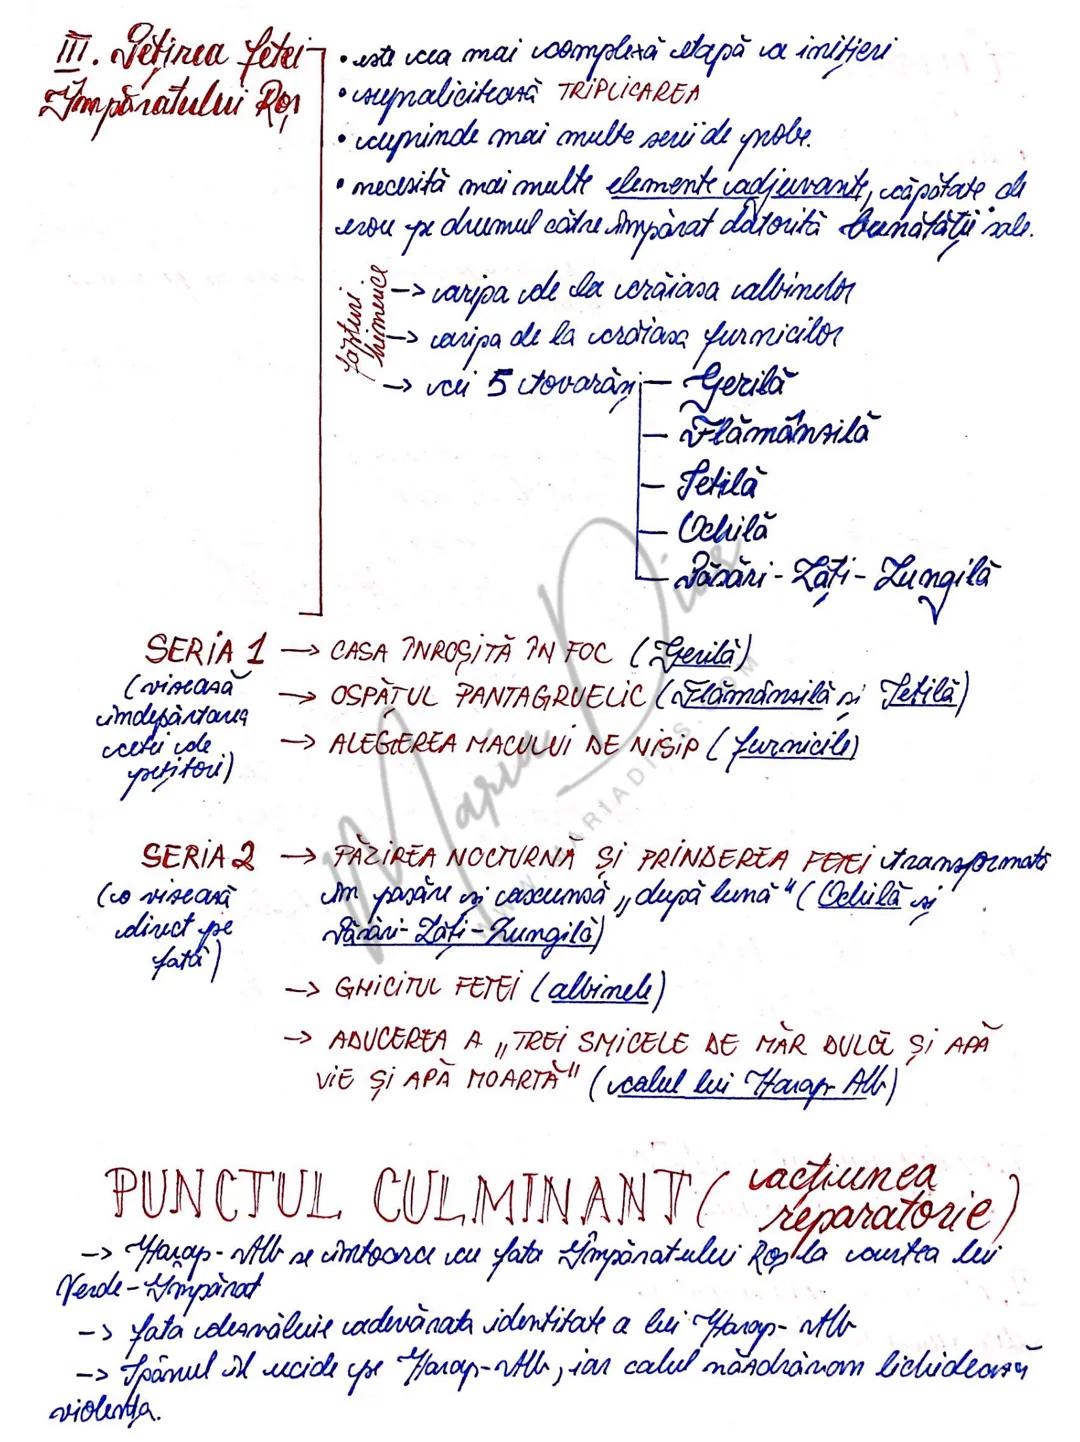 III. Pețirea fetei
Împăratului Roș
• este cea mai complexă etapă a inițieri
• supralicitează TRIPLICAREA
• cuprinde mai multe serii de probe.
• necesită mai multe elemente adjuvante, căpătate de
erou pe drumul către împărat datorită bunătății sale.
făpturi
himerice
-> aripa de la crăiasa albinelor
-> aripa de la crăiasa furnicilor
-> cei 5 tovarăși
— Gerilă
— Flămânzilă
— Setilă
— Ochilă
— Păsări-Lăți-Lungilă
SERIA 1 -> CASA ÎNROȘITĂ ÎN FOC (Gerilă)
(vizează
îndepărtarea
cetei de
pețitori)
-> OSPĂȚUL PANTAGRUELIC (Flămânzilă și Setilă)
-> ALEGEREA MACULUI DE NISIP (furnicile)
SERIA 2 -> PĂZIREA NOCTURNĂ ȘI PRINDEREA FETEI transformată
(o vizează
direct pe
fată)
în pasăre și ascunsă „după lună" (Ochilă și
Păsări-Lăți-Lungilă)
-> GHICITUL FETEI (albinele)
-> ADUCEREA A „TREI SMICELE DE MĂR DULCE ȘI APĂ
VIE ȘI APĂ MOARTĂ" (calul lui Harap Alb)
PUNCTUL CULMINANT (acțiunea
reparatorie)
-> Harap-Alb se întoarce cu fata Împăratului Roș la curtea lui
Verde-Împărat
-> fata dezvăluie adevărata identitate a lui Harap-Alb
-> Spânul îl ucide pe Harap-Alb, iar calul năzdrăvan lichidează
violența.
Maria Dias
WWW.MARIADIAS.COM